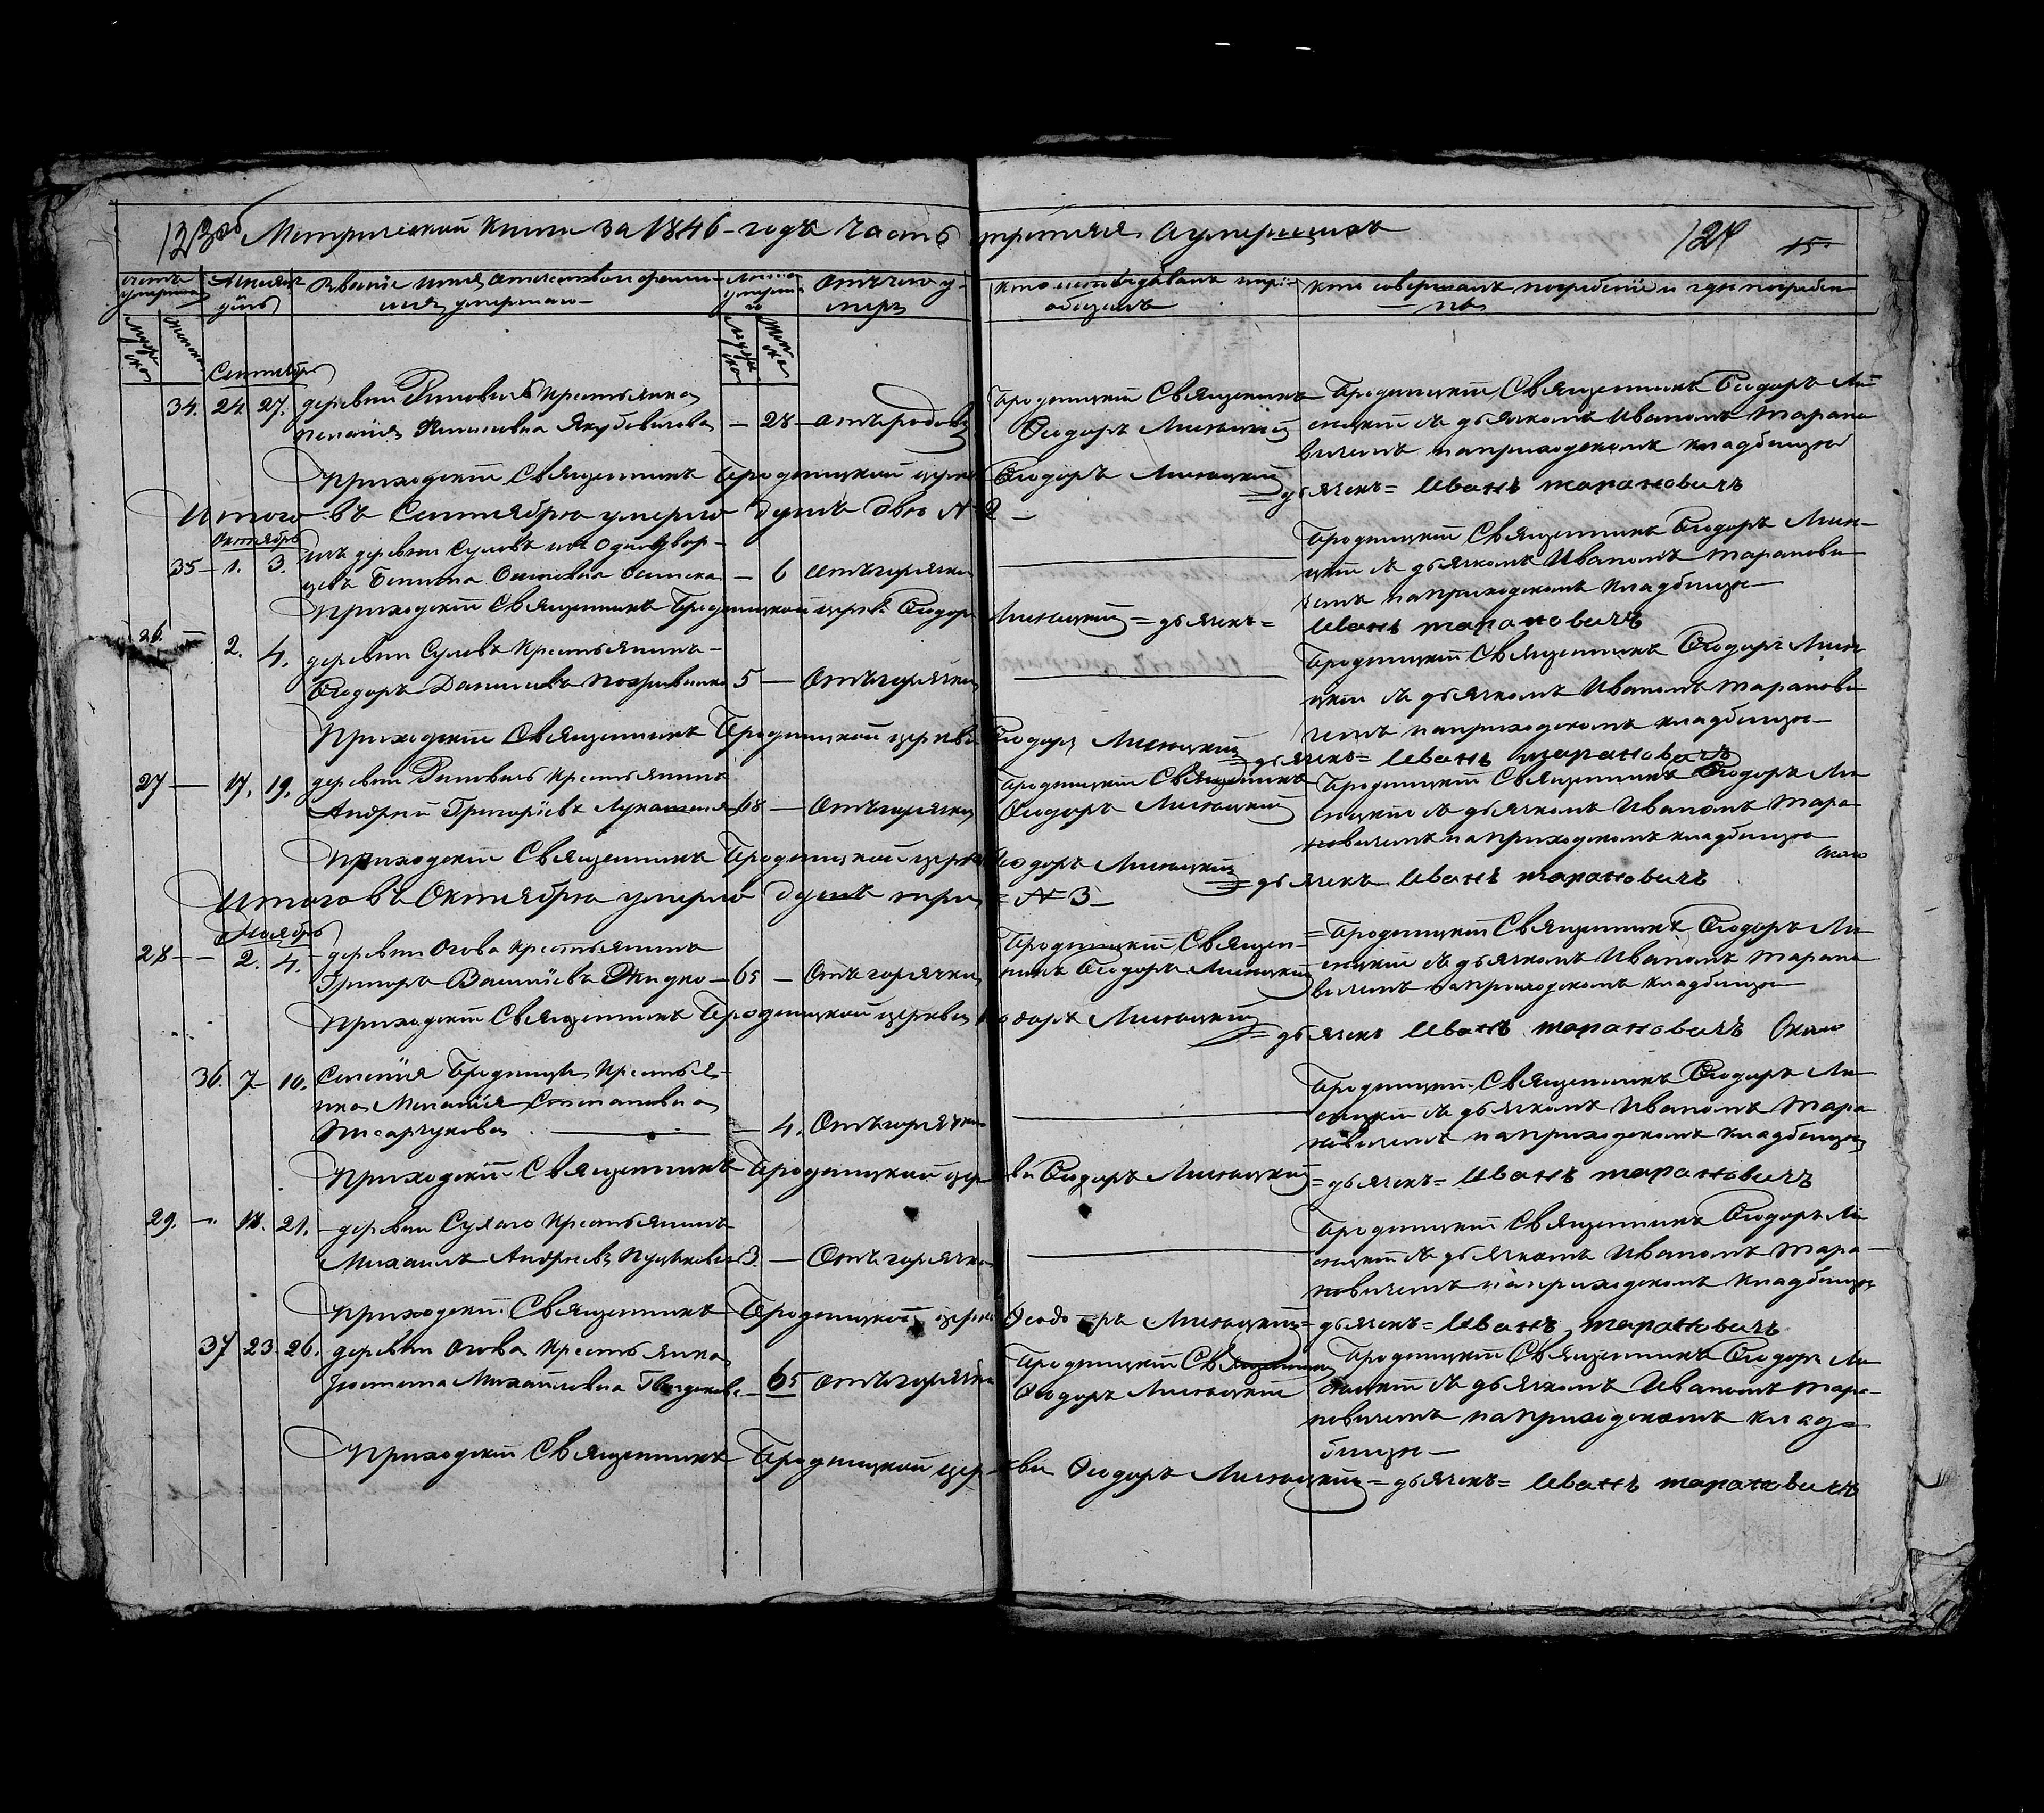 123об Метрической книги за 1846 годъ часть третия о умершихъ 124 15
счетъ умершихъ
Мужеска
Женска
Месяцъ день
Звание имя отечество и фамилия умершаго
Лета умершаго
Мужеска
Женска
Отъ чего умеръ
Кто исповедывалъ и приобщалъ
Кто совершалъ погребение и где погребены
Сентябрь
34. 24. 27. деревни Риповичъ крестьянка
Якубовичова — 28 — отъ родовъ
Бродницкий Священникъ
Феодоръ Лисицкий
Бродницкий Священникъ Феодоръ Ли-
сицкий съ дьячкомъ Иваномъ Тарано-
вичемъ на приходскомъ кладбищи
Приходский Священникъ Бродницкой церкви Феодоръ Лисицкий
= дьячекъ = Иванъ Тарановичъ
Итого въ Сентябрѣ умерло душъ двѣ № 2 —
Октябрь
35 — 1. 3. деревни Суловъ изъ Однодвор-
цевъ — 6 отъ горячки
Бродницкий Священникъ Феодоръ Лиси-
цкий съ дьячкомъ Иваномъ Таранови-
чемъ на приходскомъ кладбищи —
Приходский Священникъ Бродницкой церкви Феодоръ Лисицкий = дьячекъ = Иванъ Тарановичъ
26. — 2. 4. деревни Суловъ крестьянинъ —
Феодоръ Даниловъ 5 — Отъ горячки
Бродницкий Священникъ Феодоръ Лиси-
цкий съ дьячкомъ Иваномъ Таранови-
чемъ на приходскомъ кладбищи —
Приходский Священникъ Бродницкой церкви Феодоръ Лисицкий
= дьячекъ = Иванъ Тарановичъ
27 — 17. 19. деревни Риповичъ крестьянинъ
Андрей Григориевъ 68 — Отъ горячки
Бродницкий Священникъ
Феодоръ Лисицкий
Бродницкий Священникъ Феодоръ Ли-
сицкий съ дьячкомъ Иваномъ Тара-
новичемъ на приходскомъ кладбищи
Приходский Священникъ Бродницкой церкви Феодоръ Лисицкий
= дьячекъ Иванъ Тарановичъ
Итого въ Октябрѣ умерло душъ три = № 3 —
Ноябрь
28 — — 2. 4. деревни Огова крестьянинъ
Григоръ Василиевъ Жидко — 65 — Отъ горячки
Бродницкий Священ-
никъ Феодоръ Лисицкий
= Бродницкий Священникъ Феодоръ Ли-
сицкий съ дьячкомъ Иваномъ Тарано-
вичемъ на приходскомъ кладбищи —
Приходский Священникъ Бродницкой церкви Феодоръ Лисицкий
= дьячекъ Иванъ Тарановичъ
36. 7 — 10. Селения Бродницы крестья-
нка Мелания Степановна
Писарчукова — 4. Отъ горячки
Бродницкий Священникъ Феодоръ Ли-
сицкий съ дьячкомъ Иваномъ Тара-
новичемъ на приходскомъ кладбищи
Приходский Священникъ Бродницкой церкви Феодоръ Лисицкий = дьячекъ = Иванъ Тарановичъ
29. — 18. 21. — деревни Сухаго крестьянинъ
Михаилъ Андреевъ 3. — Отъ горячки
Бродницкий Священникъ Феодоръ Ли-
сицкий съ дьячкомъ Иваномъ Тара-
новичемъ на приходскомъ кладбищи
Приходский Священникъ Бродницкой церкви Феодоръ Лисицкий = дьячекъ = Иванъ Тарановичъ
37 23. 26. деревни Огова крестьянка
Михайловна — 65 отъ горячки
Бродницкий Священникъ
Феодоръ Лисицкий
Бродницкий Священникъ Феодоръ Ли-
сицкий съ дьячкомъ Иваномъ Тара-
новичемъ на приходскомъ клад-
бищи —
Приходский Священникъ Бродницкой церкви Феодоръ Лисицкий = дьячекъ = Иванъ Тарановичъ